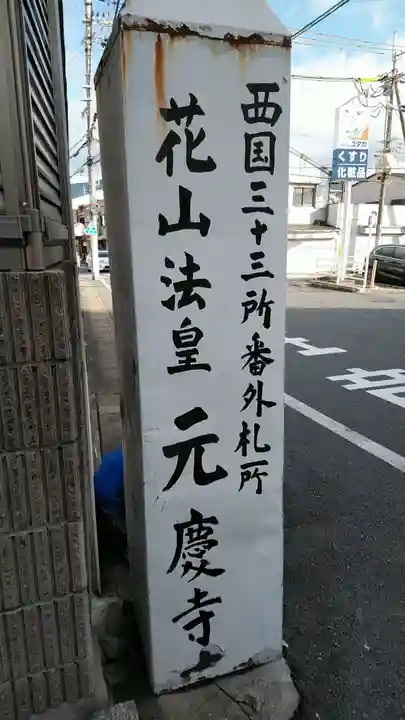 西国三十三所番外札所
花山法皇 元慶寺
くすり
化粧品